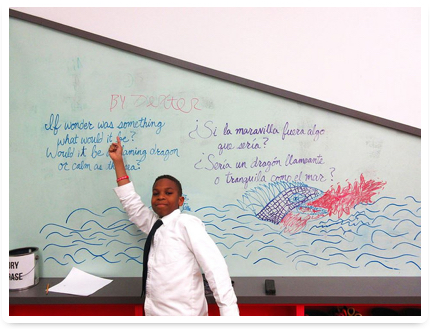 BY Dexter
If wonder was something
what would it be?
Would it be flaming dragon
or calm as the sea?
¿Si la maravilla fuera algo
que seria?
¿Seria un dragón llameante
o tranquila como el mar?
RY
ASE